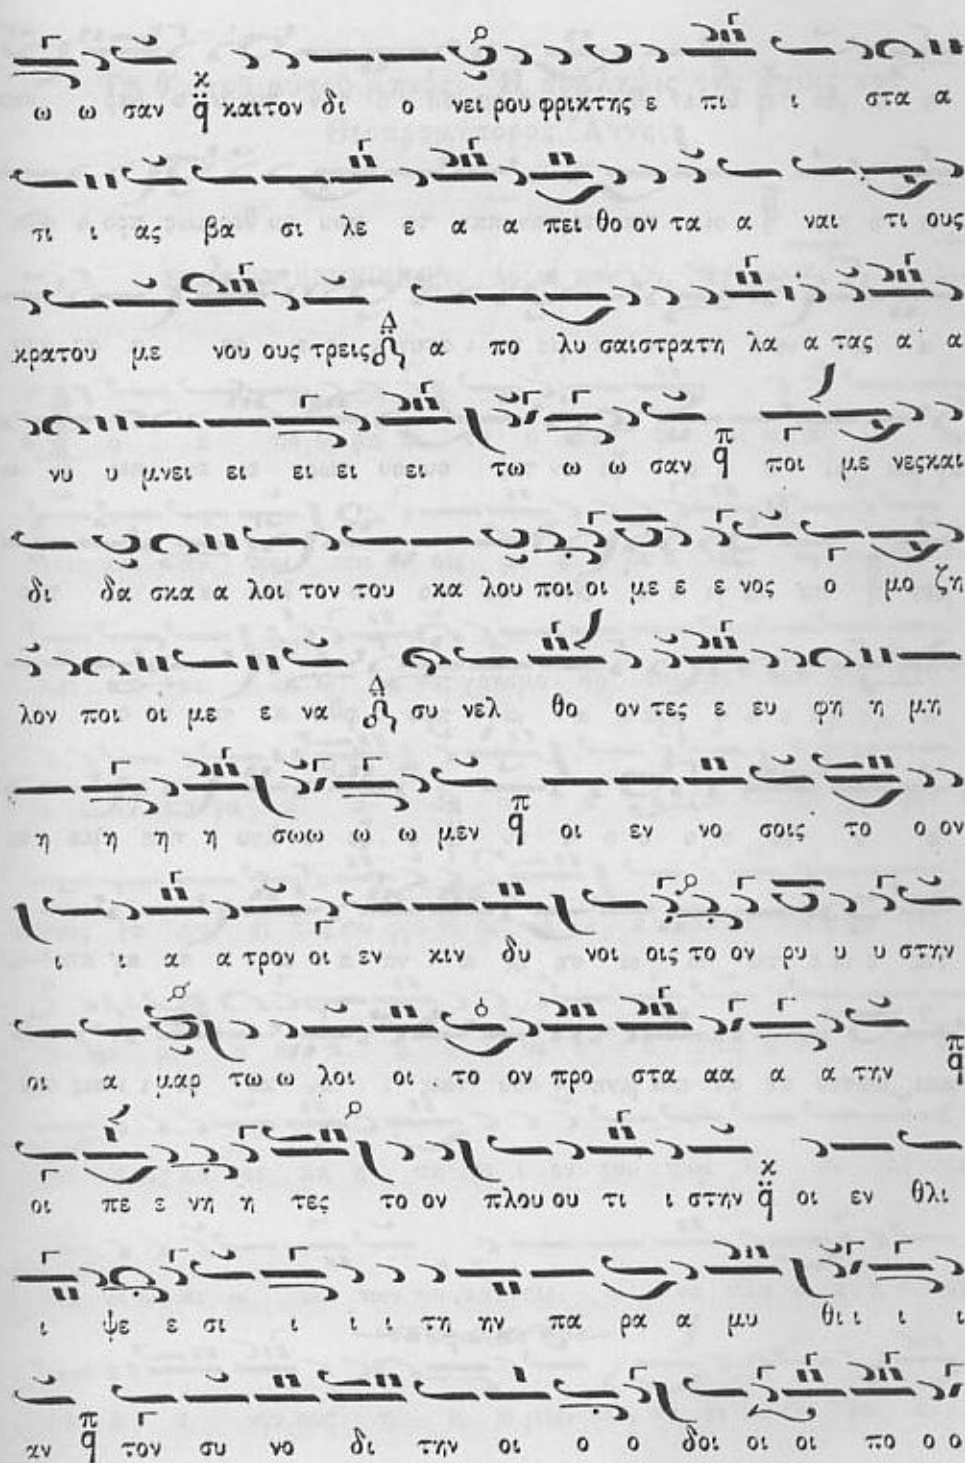 ω ω σαν καιτον δι ο νει ρου φρικτης ε πι ι στα α
πι ι ας βα σι λε ε α α πει θο ον τα α ναι τι ους
κρατου με νου ους τρεις α πο λυ σαιστρατη λα α τας α α
νυ υ μνει ει ει ει ει τω ω ω σαν ποι με νεςκαι
δι δα σκα α λοι τον του κα λου ποι οι με ε ε νος ο μο ζη
λον ποι οι με ε να συ νελ θο ον τες ε ευ φη η μη
η η η η σωω ω ω μεν οι εν νο σοις το ο ον
ι ι α α τρον οι εν κιν δυ νοι οις το ον ρυ υ υ στην
οι α μαρ τω ω λοι οι το ον προ στα αα α α την
οι πε ε νη η τες το ον πλου ου τι ι στην οι εν θλι
ι ψε ε σι ι ι ι τη ην πα ρα α μυ θι ι ι ι
αν τον συ νο δι την οι ο ο δοι οι οι πο ο ο